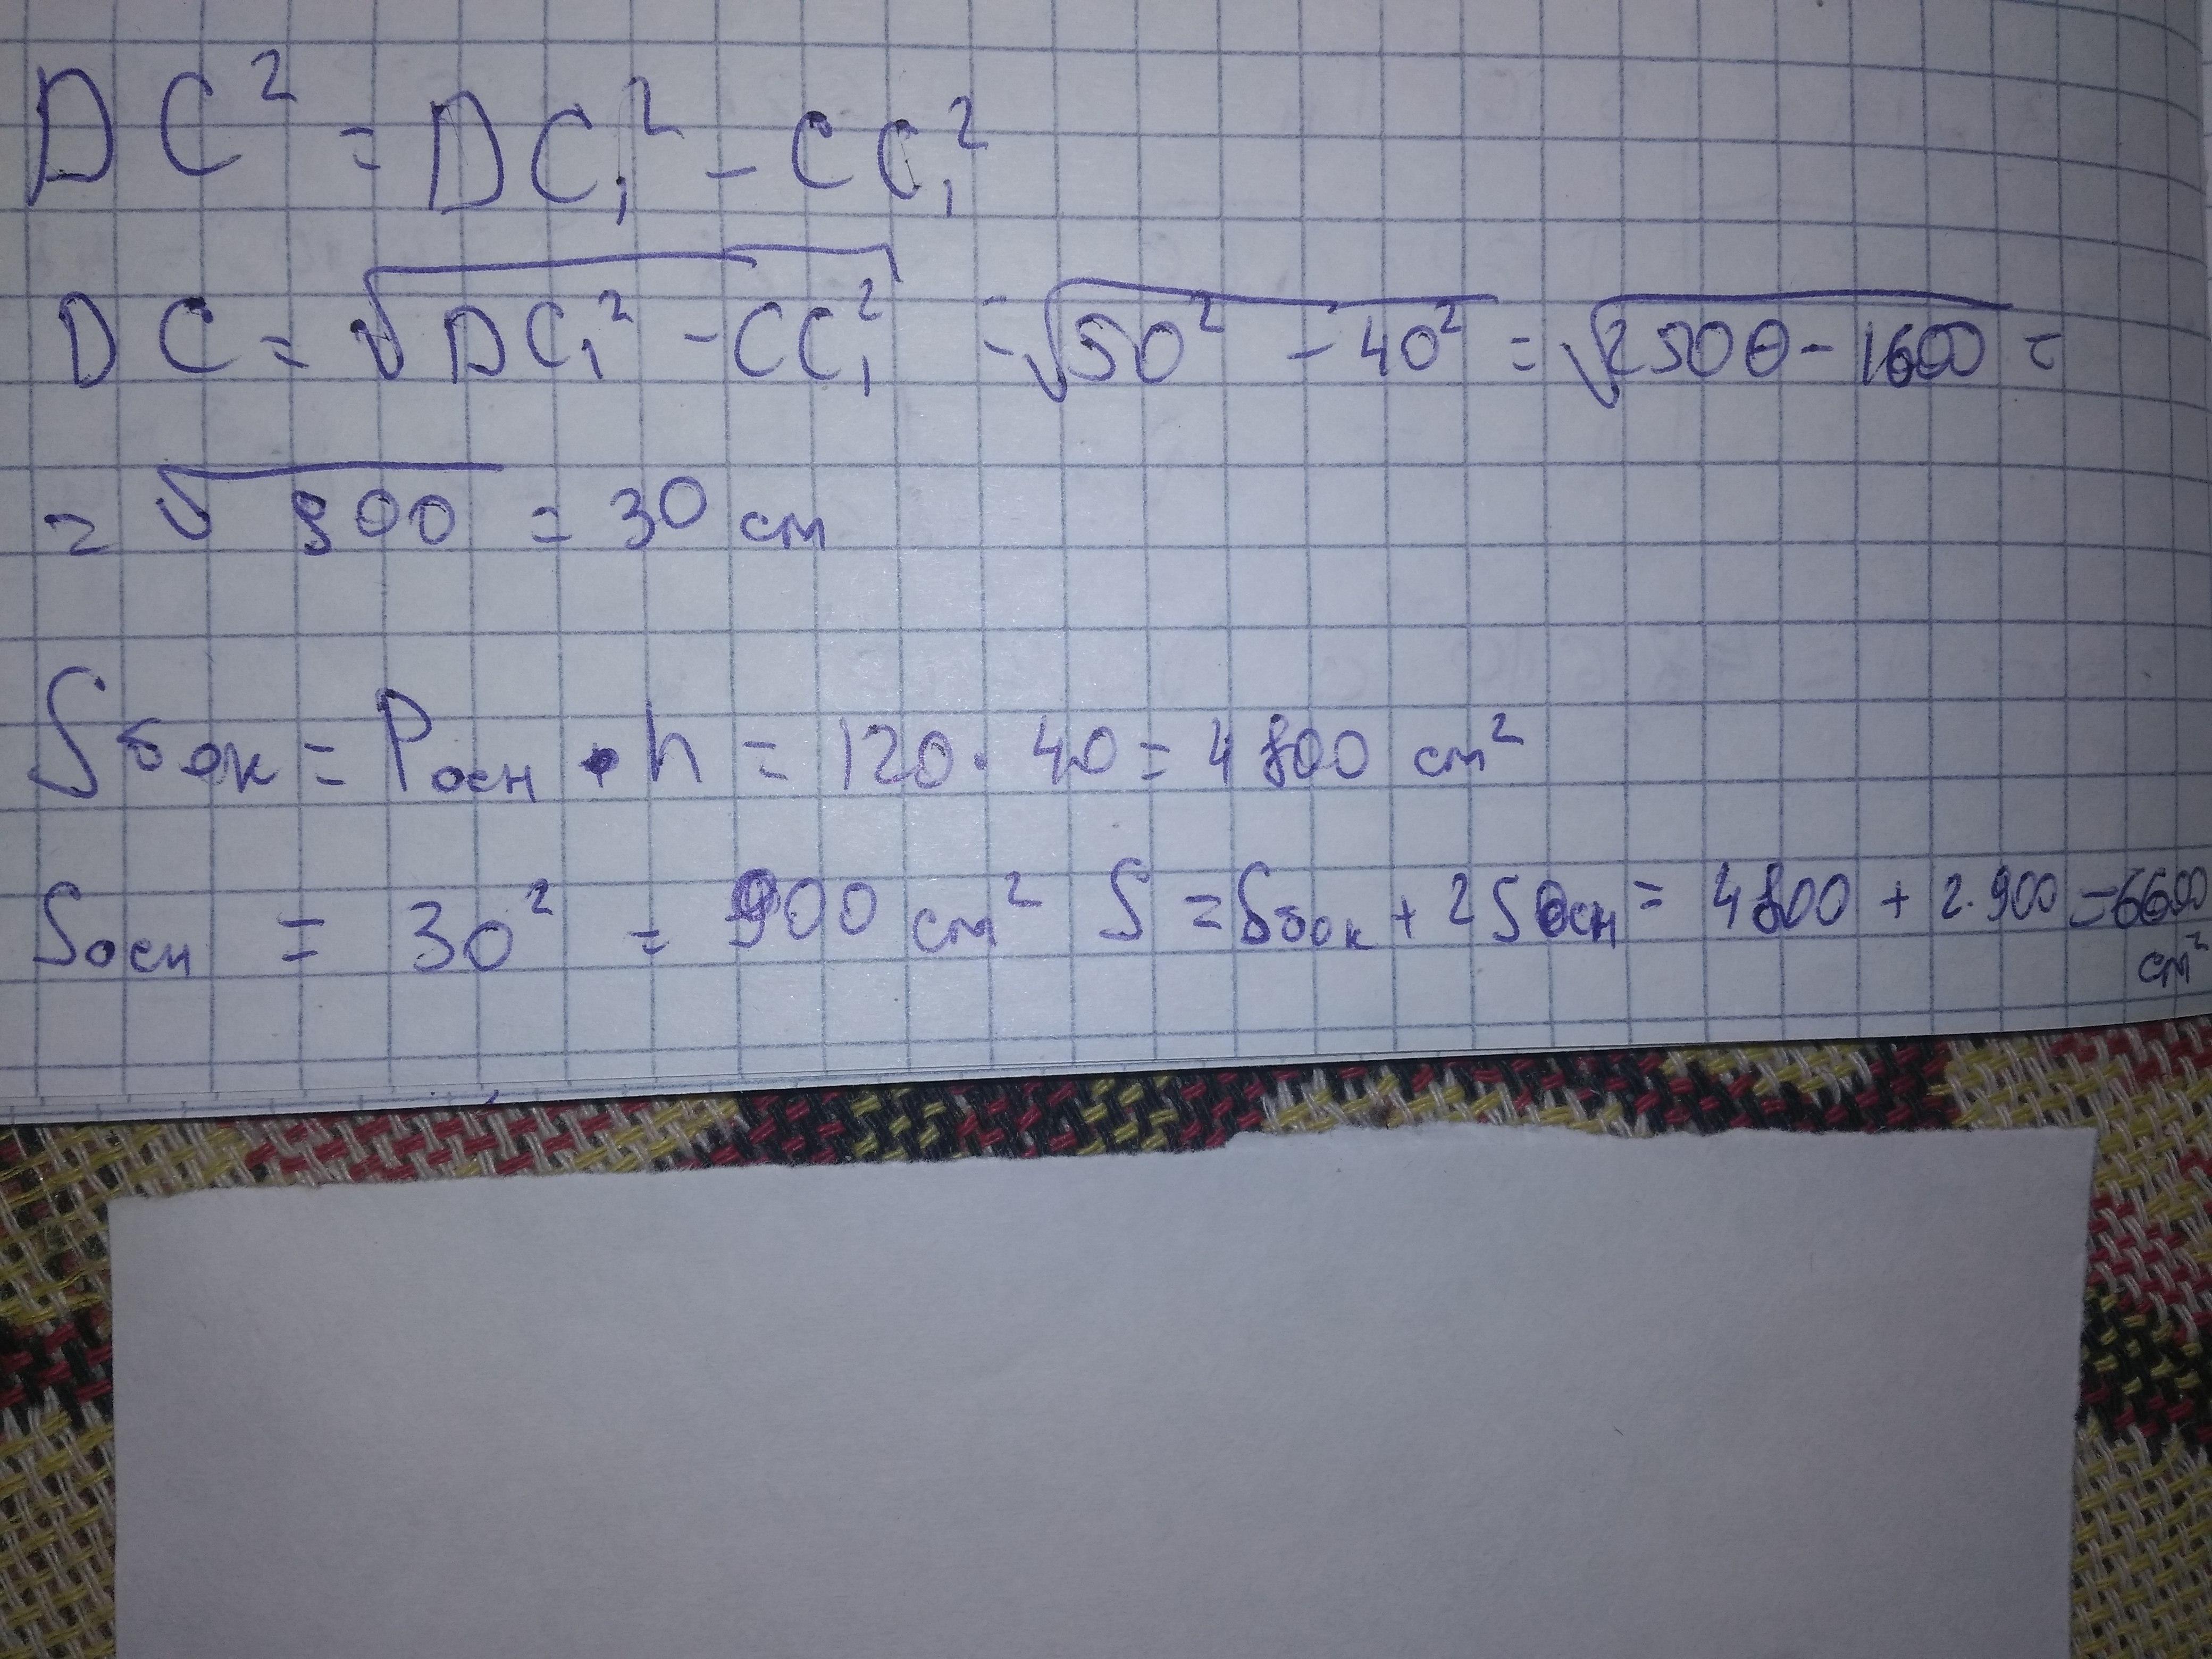 DC² = DC₁² - CC₁²
DC = √DC₁² - CC₁² = √50² - 40² = √2500 - 1600 =
= √900 = 30 см
Sбок = Pосн · h = 120 · 40 = 4800 см²
Sосн = 30² = 900 см² S = Sбок + 2Sосн = 4800 + 2·900 = 6600 см²